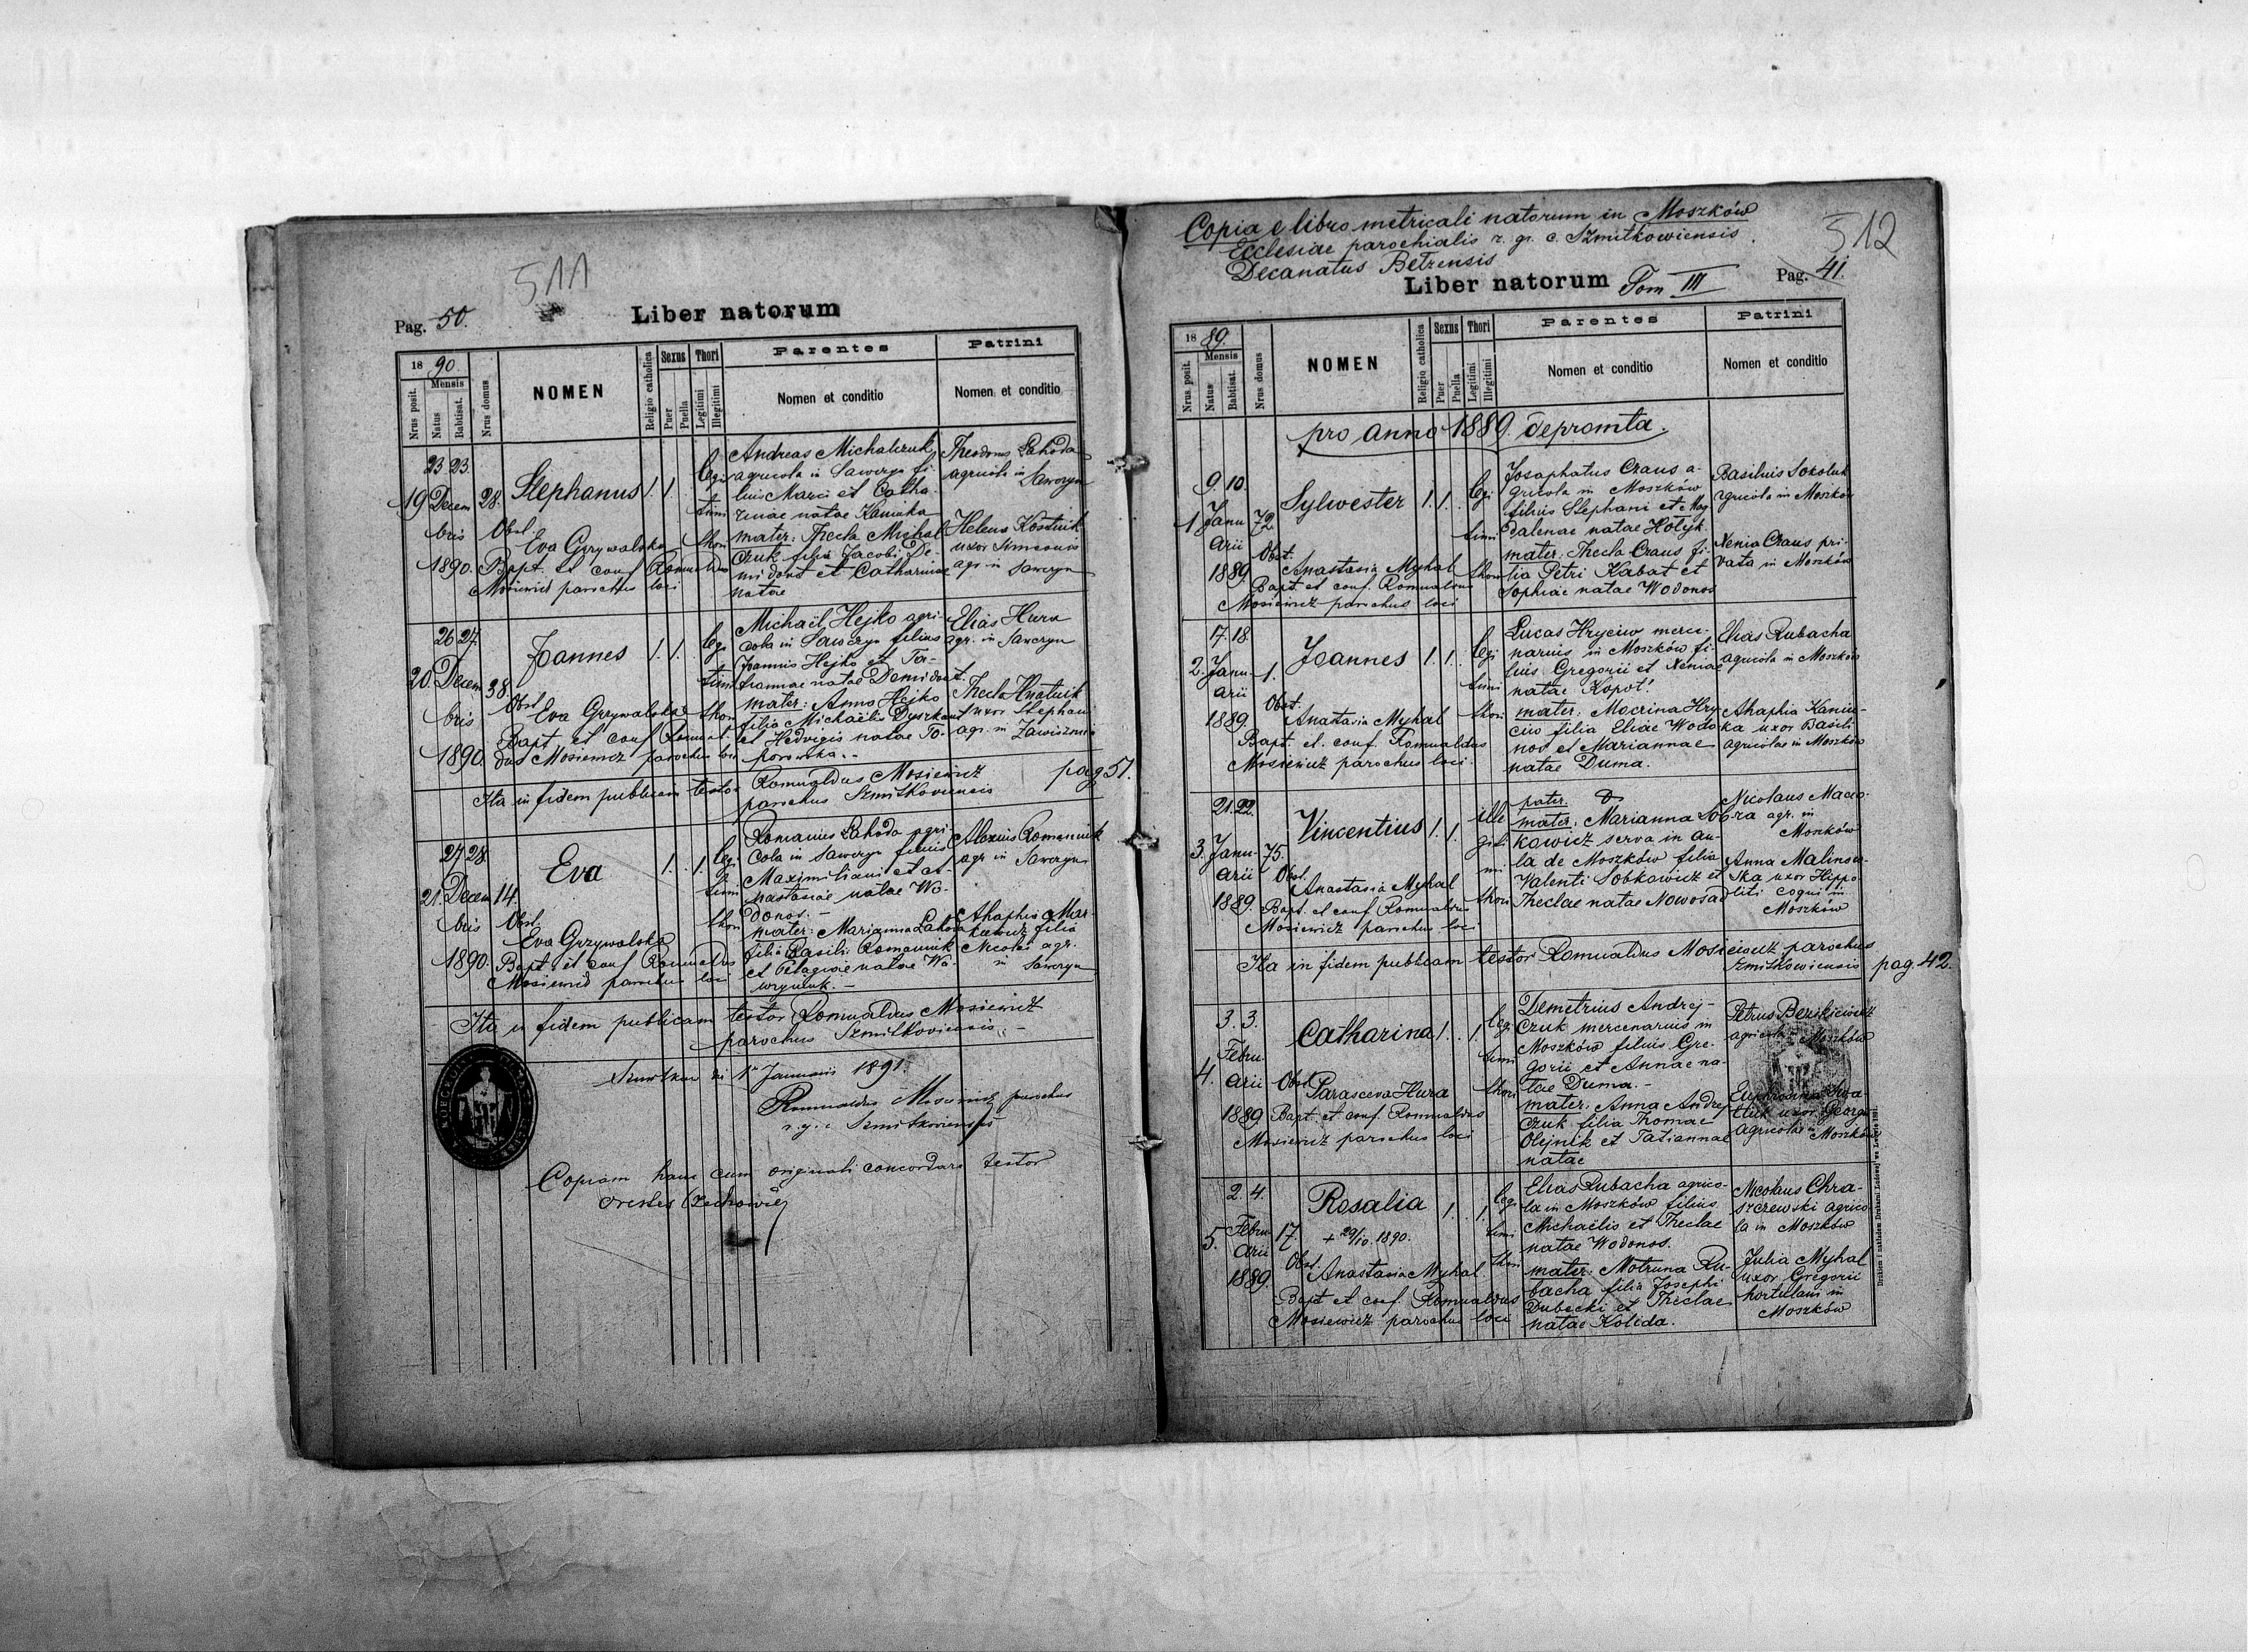 511
Pag. 50.
Liber natorum
18 90.
Mensis
Nrus posit.
Natus
Babtisat.
Nrus domus
NOMEN
Religio catholica
Sexus
Puer
Puella
Thori
Legitimi
Illegitimi
Parentes
Nomen et conditio
Patrini
Nomen et conditio
19
23 23
Decem
bris
1890.
28.
Stephanus
1. 1.
legi
timi
thori
Obst.
Eva Grzywalska
Bapt. et conf. Romualdus
Mosiewicz parochus loci
Andreas Michalczuk
agricola in Sawczyn fi-
lius Marci et Catha-
rinae natae Kaniuka
mater: Thecla Michal
czuk filia Jacobi De-
midont et Catharinae
natae
Theodorus Lahoda
agricola in Sawczyn
Helena Kostiuk
uxor Simeonis
agr. in Sawczyn
20.
26 27.
Decem
bris
1890.
38.
Joannes
1. 1.
legi
timi
thori
Obst
Eva Grzywalska
Bapt. et conf. Romual-
dus Mosiewicz parochus loci
Michaël Hejko agri-
cola in Sawczyn filius
Joannis Hejko et Ta-
tiannae natae Demidont.
mater: Anna Hejko
filia Michaëlis Dyszkant
et Hedvigis natae To-
porowska. -
Elias Hura
agr. in Sawczyn
Thecla Hnatiuk
uxor Stephani
agr. in Zawisznia
Ita in fidem publicam testor Romualdus Mosiewicz
parochus Szmitkoviensis
pag 51.
21.
27 28.
Decem
bris
1890.
14.
Eva
1. 1.
legi
timi
thori
Obst.
Eva Grzywalska
Bapt. et conf Romualdus
Mosiewicz parochus loci
Romanus Lahoda agri-
cola in Sawczyn filius
Maximiliani et A-
nastasiae natae Wo-
donos. -
mater: Marianna Lahoda
filia Basilii Romaniuk
et Pelagiae natae Wa-
wryniuk. -
Alexius Romaniuk
agr in Sawczyn
Ahaphia Mar-
kiewicz filia
Nicolai agr.
in Sawczyn
Ita in fidem publicam testor Romualdus Mosiewicz
parochus Szmitkoviensis. -
1 Januarii 1891.
Romualdus Mosiewicz parochus
r. g. c Szmitkoviensis
Copiam hanc cum originali concordare testor
Orestes Czechowicz
Copia e libro metricali natorum in Moszków
Ecclesiae parochialis r. gr. c. Szmitkowiensis.
Decanatus Betzensis
512
Liber natorum Tom III
Pag. 41.
18 89.
Mensis
Nrus posit.
Natus
Babtisat.
Nrus domus
NOMEN
Religio catholica
Sexus
Puer
Puella
Thori
Legitimi
Illegitimi
Parentes
Nomen et conditio
Patrini
Nomen et conditio
pro anno 1889. depromta.
1
9. 10.
Janu
arii
1889
72
Sylwester
1. 1.
legi
timi
thori
Obst.
Anastasia Myhal
Bapt. et conf. Romualdus
Mosiewicz parochus loci
Josaphatus Craus a-
gricola in Moszków
filius Stephani et Mag
dalenae natae Hołyk.
mater: Thecla Craus fi-
lia Petri Kabat et
Sophiae natae Wodonos
Basilius Sokoluk
agricola in Moszków
Xenia Craus pri-
vata in Moszków
2.
17. 18.
Janu-
arii
1889.
1.
Joannes
1. 1.
legi
timi
thori
Obst.
Anastasia Myhal
Bapt. et. conf. Romualdus
Mosiewicz parochus loci.
Lucas Hryciw merce-
narius in Moszków fi-
lius Gregorii et Xeniae
natae Kopot.
mater: Macrina Hry-
ciw filia Eliae Wodo
nos et Mariannae
natae Duma.
Elias Rubacha
agricola in Moszków
Ahaphia Kaniu-
ka uxor Basili
agricolae in Moszków
3.
21. 22.
Janu-
arii
1889.
75.
Vincentius
1. 1.
ille
giti
mi
thori
Obst.
Anastasia Myhal
Bapt. et conf Romualdus
Mosiewicz parochus loci
pater:
mater: Marianna Sob-
kowicz serva in au-
la de Moszków filia
Valenti Sobkowicz et
Theclae natae Nowosad
Nicolaus Macio-
ra agr. in
Moszków
Anna Malinow-
ska uxor Hippo-
liti coqui in
Moszków
Ita in fidem publicam testor Romualdus Mosiewicz parochus
Szmitkowiensis
pag. 42.
4.
3. 3.
Febru
arii
1889
Catharina
1. 1.
legi
timi
thori
Obst.
Parasceva Hura
Bapt. et conf. Romualdus
Mosiewicz parochus loci
Demetrius Andrej-
czuk mercenarius in
Moszków filius Gre-
gorii et Annae na-
tae Duma. -
mater: Anna Andrej
czuk filia Thomae
Olejnik et Tatiannae
natae
Petrus Bezikiewicz
agricola Moszków
uxor Georgi
agricolae in Moszków
5.
2. 4.
Febru
arii
1889.
17.
Rosalia
+ 29/10. 1890.
1. 1.
legi
timi
thori
Obst.
Anastasia Myhal.
Bapt et conf. Romualdus
Mosiewicz parochus loci
Elias Rubacha agrico-
la in Moszków filius
Michaëlis et Theclae
natae Wodonos.
mater: Motruna Ru-
bacha filia Josephi
Dubecki et Theclae
natae Kolida.
Nicolaus Chra-
szczewski agrico
la in Moszków
Julia Myhal
uxor Gregorii
hortulani in
Moszków